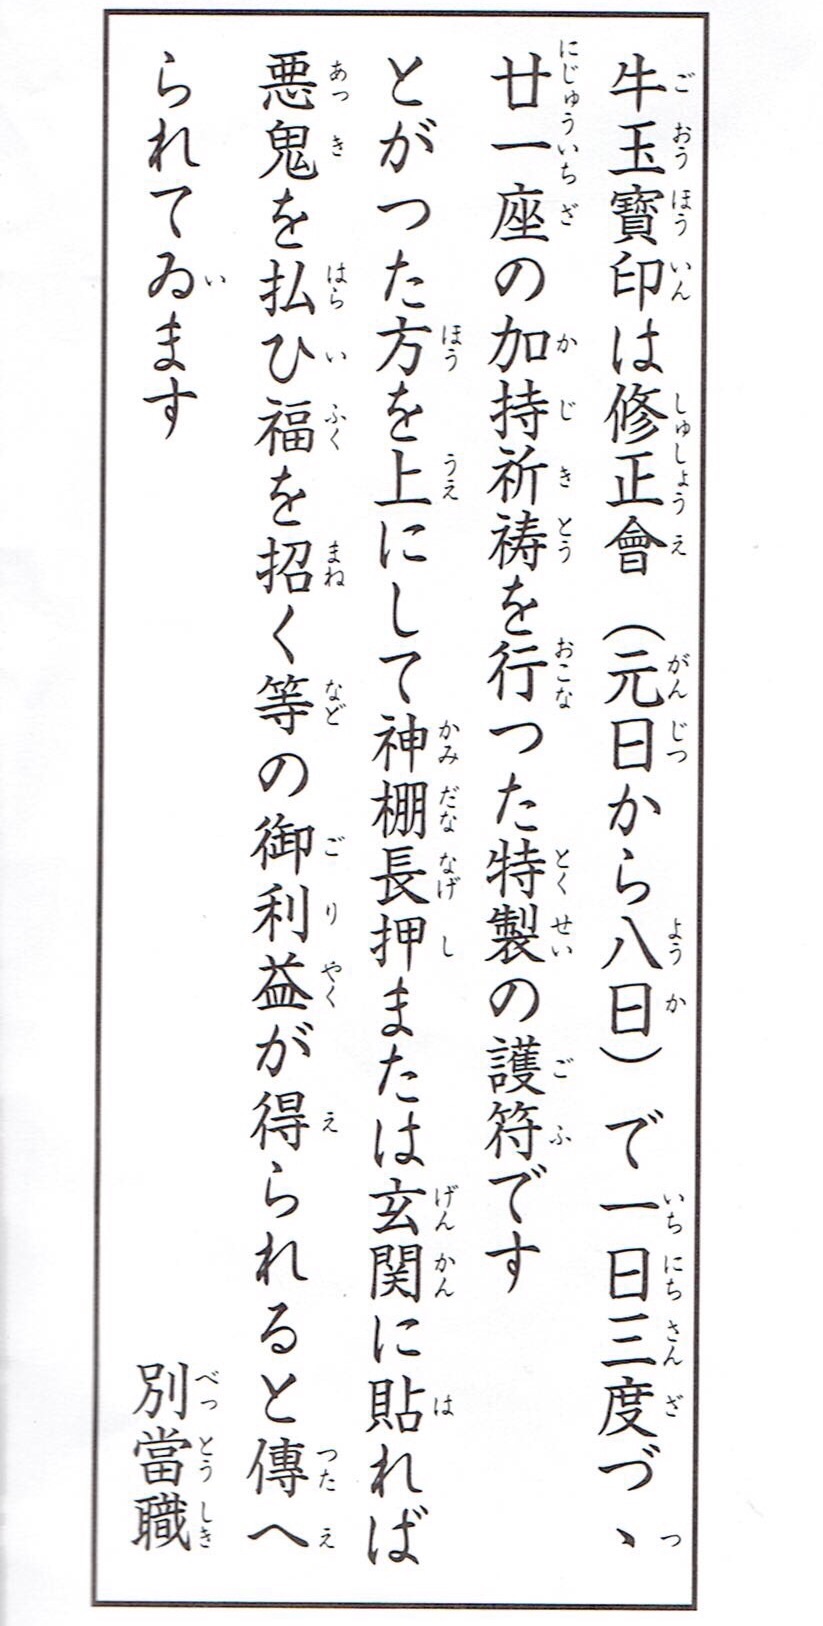 牛玉寶印は修正會（元日から八日）で一日三度づゝ
廿一座の加持祈祷を行つた特製の護符です
とがつた方を上にして神棚長押または玄関に貼れば
悪鬼を払ひ福を招く等の御利益が得られると傳へ
られてゐます
別當職